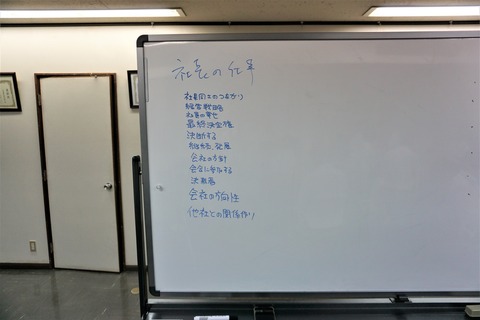 社長の仕事
社員同士のつながり
経営戦略
最終決定権
決断する
継続、発展
会社の方針
会合に参加する
決裁者
会社の方向性
他社との関係作り